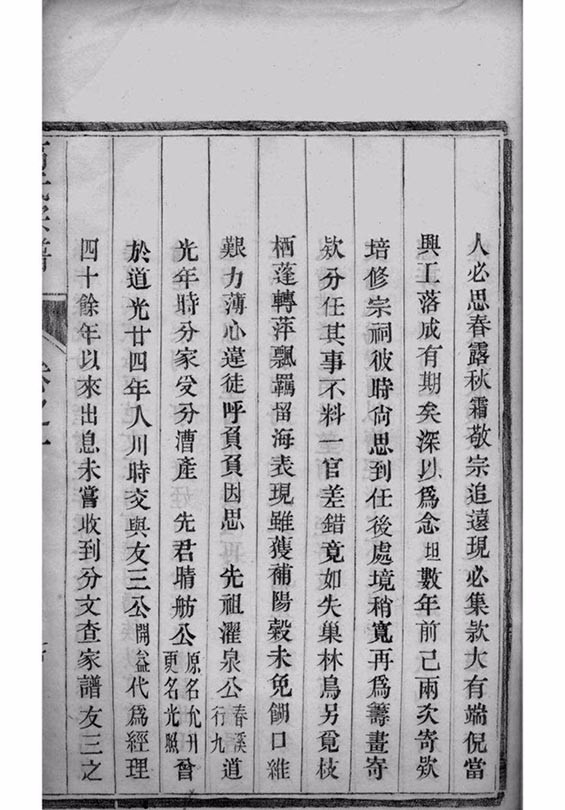 人必思春露秋霜敬宗追遠現必集款大有端倪當
興工落成有期矣深以爲念坦數年前已兩次寄欵
培修宗祠彼時尙思到任後處境稍寬再爲籌畫寄
欵分任其事不料一官差錯竟如失巢林鳥另覓枝
栖蓬轉萍飄羈留海表現雖獲補陽穀未免餬口維
艱力薄心違徒呼負負因思 先祖濯泉公春溪行九道
光年時分家受分漕產 先君晴舫公原名允升更名光照曾
於道光廿四年入川時交與友三公開益代爲經理
四十餘年以來出息未嘗收到分文查家譜友三之
氏家譜 卷之一